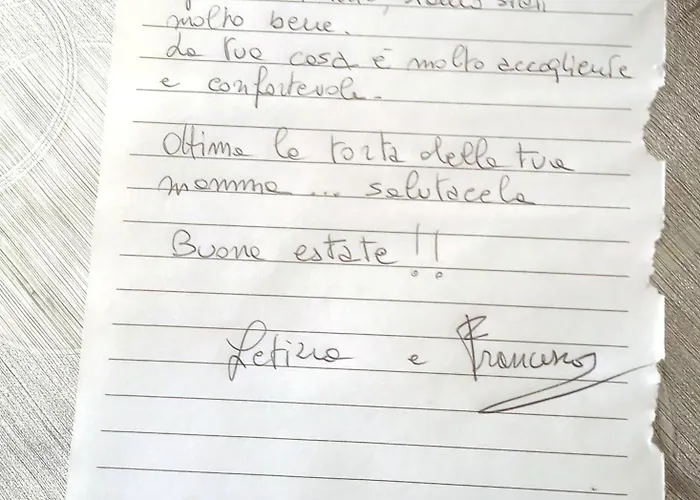 molto bene.
La tua casa è molto accogliente
e confortevole.
Ottima la torta della tua
mamma... salutacela
Buone estate!!
Letizia e Francesco